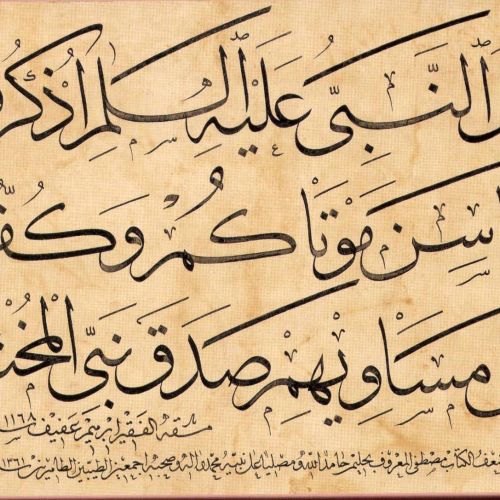 ل النَّبِىّ عَلَيْهِ السلم اُذْكُرُو
سِن مَوْتَاكُمْ وَكُفّ
مَسَاوِيهِمْ صَدَقَ نَبِىّ المُخت
مشقه الفقير ابرهيم عفيف ١١٦٨
ضعف الكتاب مصطفى المعروف بحليم حامدا لله ومصليا على نبيه محمد واله وصحبه اجمعين الطيبين الطاهرين ١٣٦١